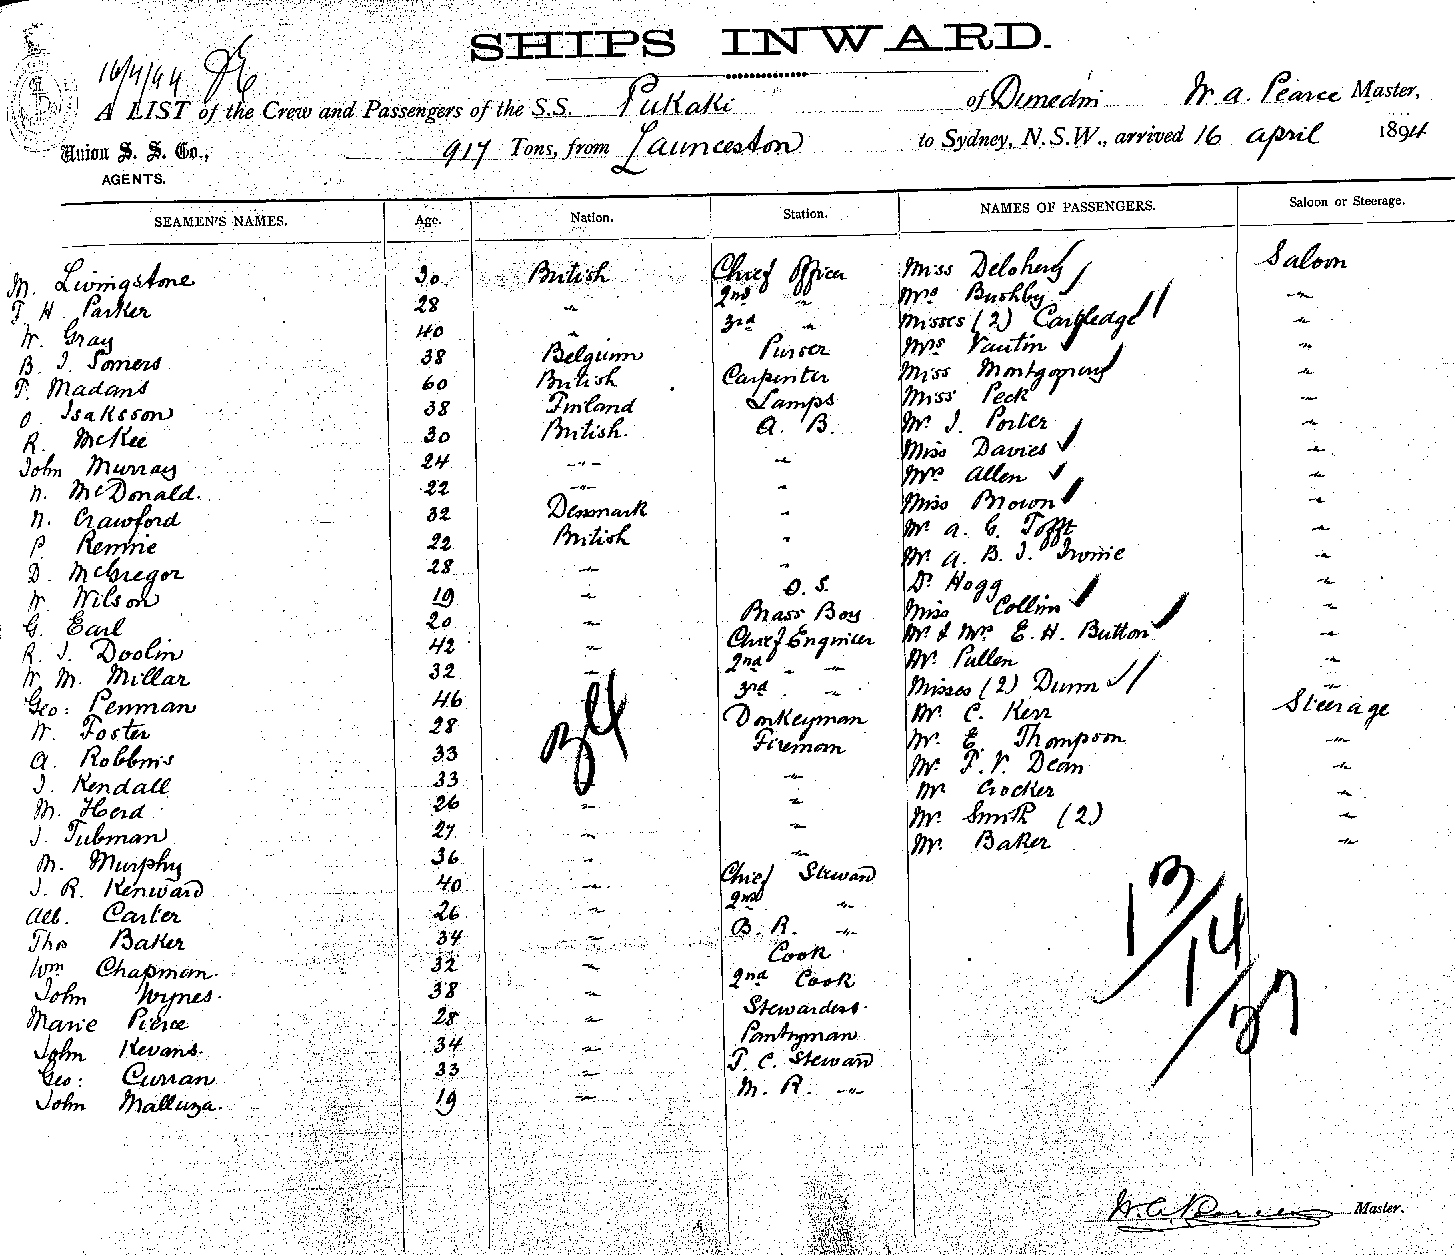 SHIPS INWARD.
16/4/94
A LIST of the Crew and Passengers of the S.S. Pukaki of Dunedin W. A. Pearce Master,
Union S. S. Co., 917 Tons, from Launceston to Sydney, N.S.W., arrived 16 April 1894
AGENTS.
SEAMEN'S NAMES. Age. Nation. Station. NAMES OF PASSENGERS. Saloon or Steerage.
M. Livingstone 30 British Chief Officer Miss Deloherty Saloon
F H Parker 28 " 2nd " Mrs Bushby "
W. Gray 40 " 3rd " Misses (2) Cartledge "
B. J. Somers 38 Belgium Purser Mrs Vautin "
F. Madans 60 British Carpenter Miss Montgomery "
O Isaksson 38 Finland Lamps Miss Peck "
R. McKee 30 British. A. B. Mr J. Porter "
John Murray 24 " " Miss Davies "
N. McDonald. 22 " " Mrs Allen "
N. Crawford 32 Denmark " Miss Brown "
P. Rennie 22 British " Mr A. C. Tofft "
D. McGregor 28 " " Mr A. B. J. Irvine "
W. Wilson 19 " O. S. Dr Hogg "
G. Earl 20 " Brass Boy Miss Collins "
R. J. Doolin 42 " Chief Engineer Mr & Mrs E. H. Button "
W. M. Millar 32 " 2nd " Mr Pullen "
Geo: Penman 46 3rd " Misses (2) Dunn "
W. Foster 28 Donkeyman Mr C. Kerr Steerage
A. Robbins 33 Fireman Mr E. Thompson "
J. Kendall 33 " Mr F. V. Dean "
M. Herd 26 " " Mr Crocker "
J. Tubman 27 " " Mr Smith (2) "
M. Murphy 36 " " Mr Baker "
J. R. Kenward 40 " Chief Steward
Alb. Carter 26 " 2nd "
Thos Baker 34 " B. R. "
Wm Chapman. 32 " Cook
John Wynes. 38 " 2nd Cook
Marie Pierce 28 " Stewardess
John Kevans. 34 " Pantryman
Geo: Curran 33 " F. C. Steward
John Malluza. 19 " M. R. "
34
13/14/37
W. A. Pearce Master.